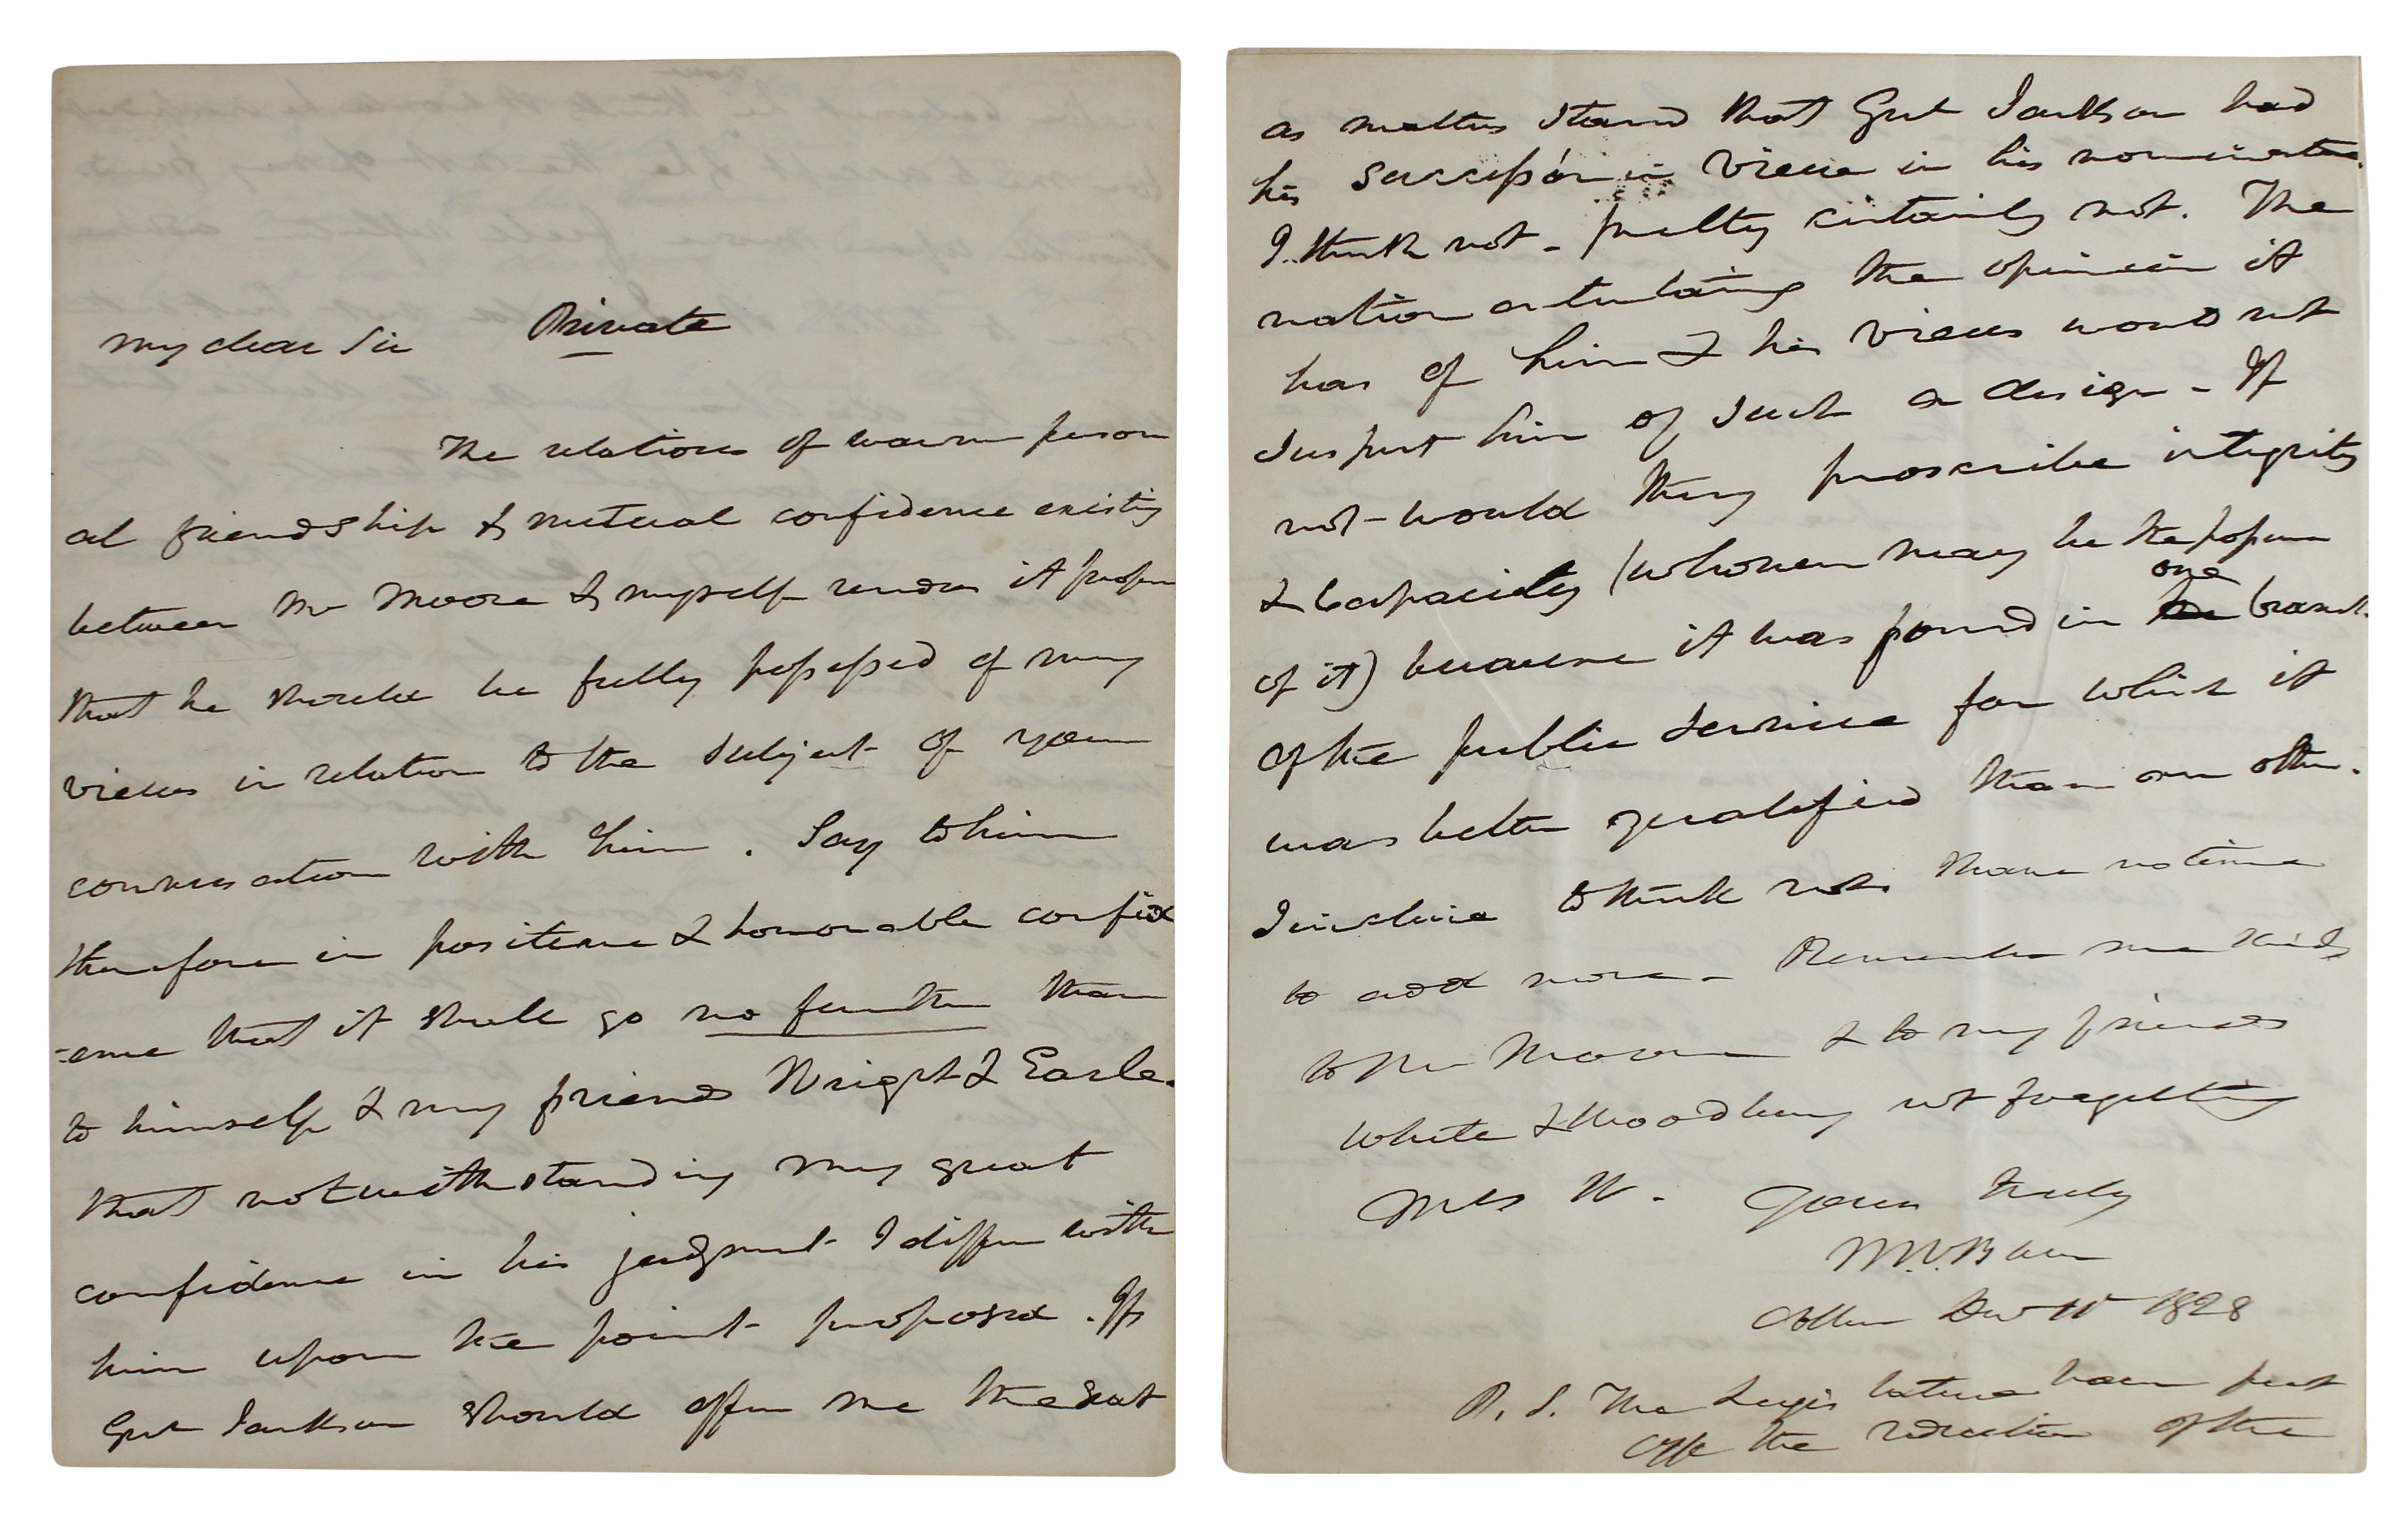 My dear Sir Private
The relations of warm person
al friendship & mutual confidence existing
between Mr Moore & myself renders it proper
that he should be fully possessed of my
views in relation to the subject of your
conversation with him. Say to him
therefore in positive & honorable confid
-ence that it shall go no further than
to himself & my friends Wright & Earle.
that notwithstanding my great
confidence in his judgment I differ with
him upon the point proposed. If
Genl Jackson should offer me the seat
as matters stand that Genl Jackson had
his succession in view in his nomination.
I think not - pretty certainly not. The
nation entertaining the opinion it
has of him & his views would not
suspect him of such a design - If
not - would they proscribe integrity
& Capacity (whoever may be the
of it) because it was found in one branch
of the public service for which it
was better qualified than an other.
I incline to think not. I have no time
to add more - Remember me kindly
to Mr Moore & to my friends
White & Woodbury not forgetting
Mrs W. Yours truly
M.V.Buren
1828
P.S. The Legislature have put
off the reduction of the